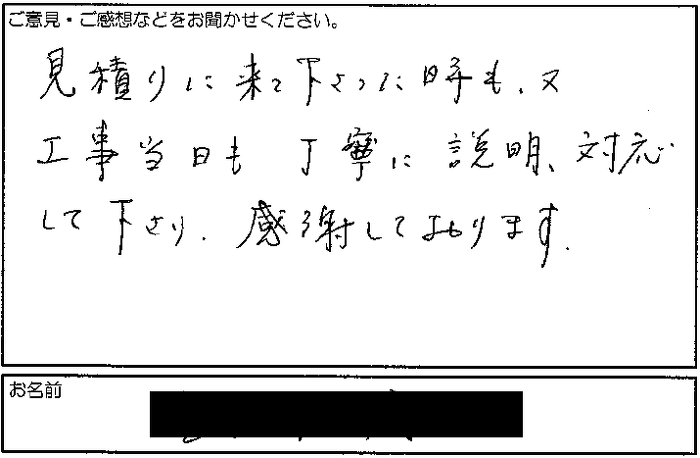 ご意見・ご感想などをお聞かせください。
見積りに来て下さった時も、又
工事当日も丁寧に説明、対応
して下さり、感謝しております。
お名前